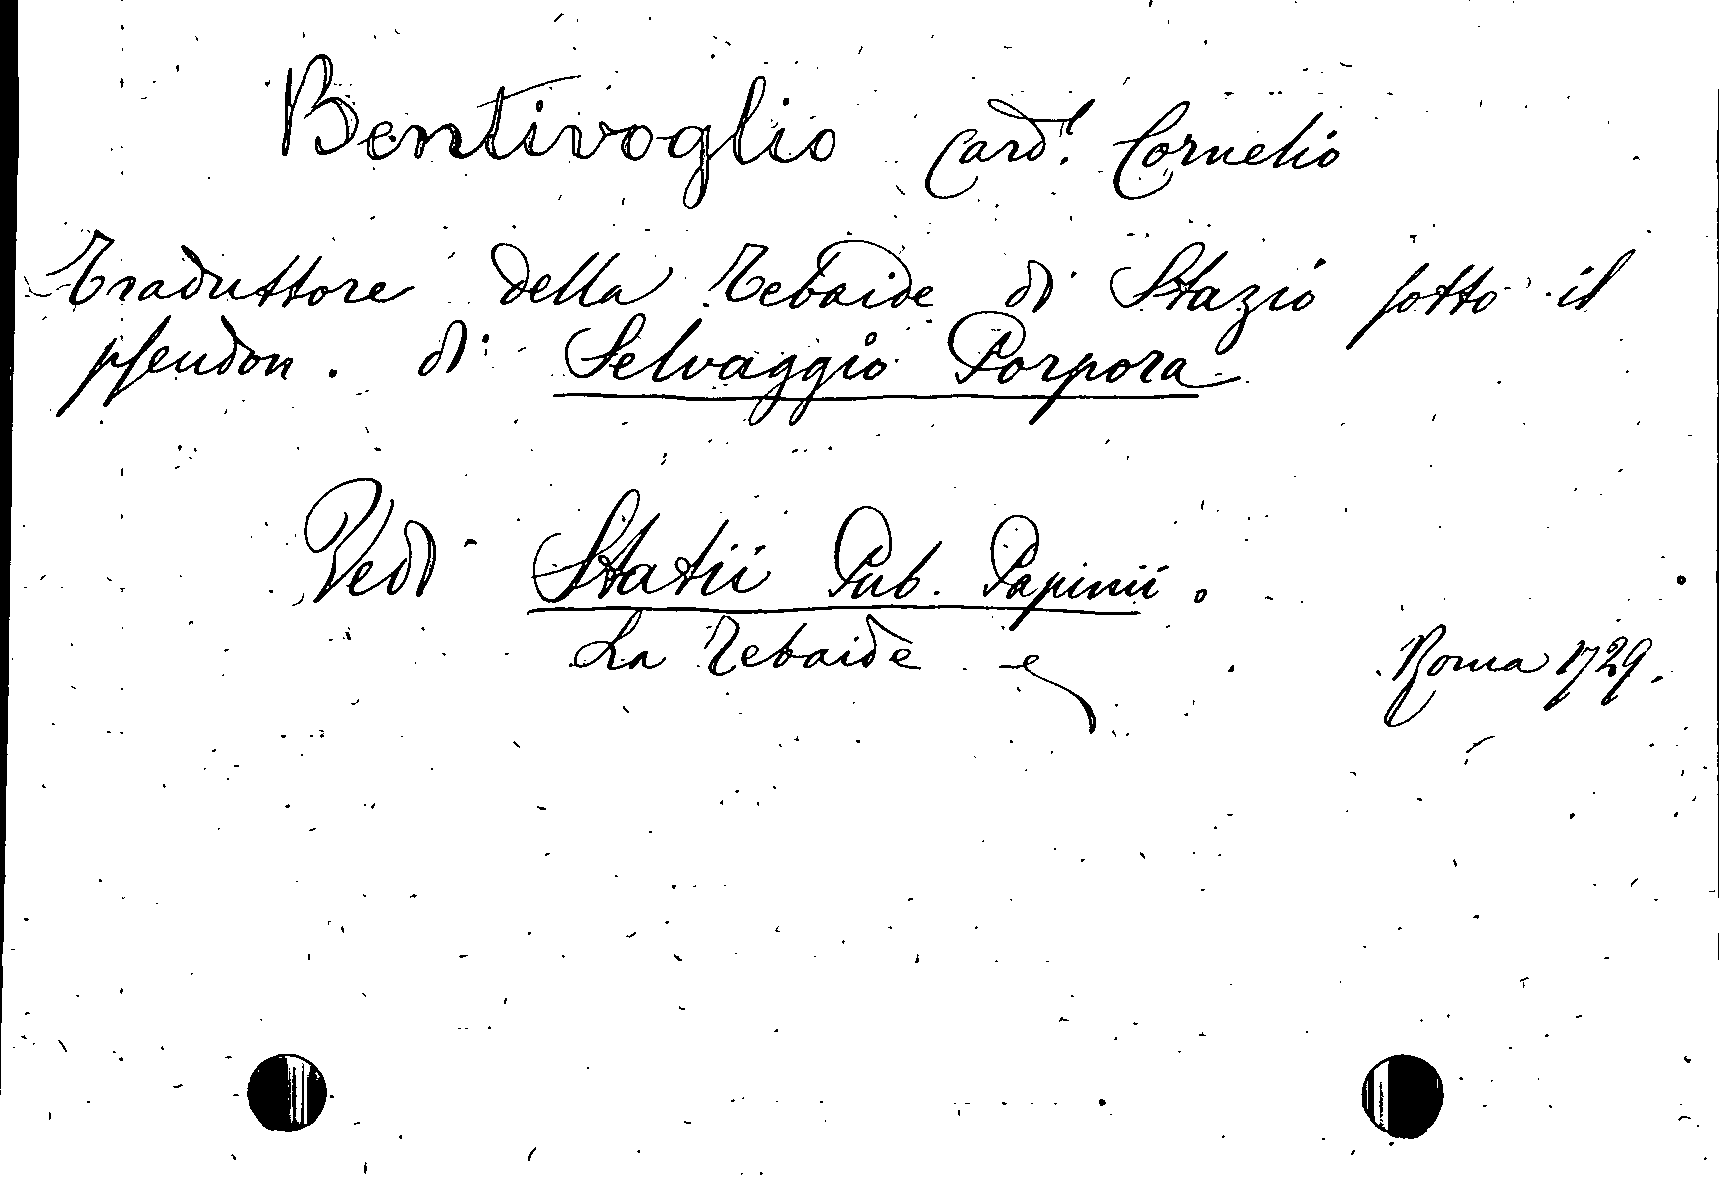 Bentivoglio Card.l Cornelio
Traduttore della Tebaide di Stazio sotto il
pseudon. di Selvaggio Porpora
Vedi Statii Pub. Papinii.
La Tebaide e Roma 1729.